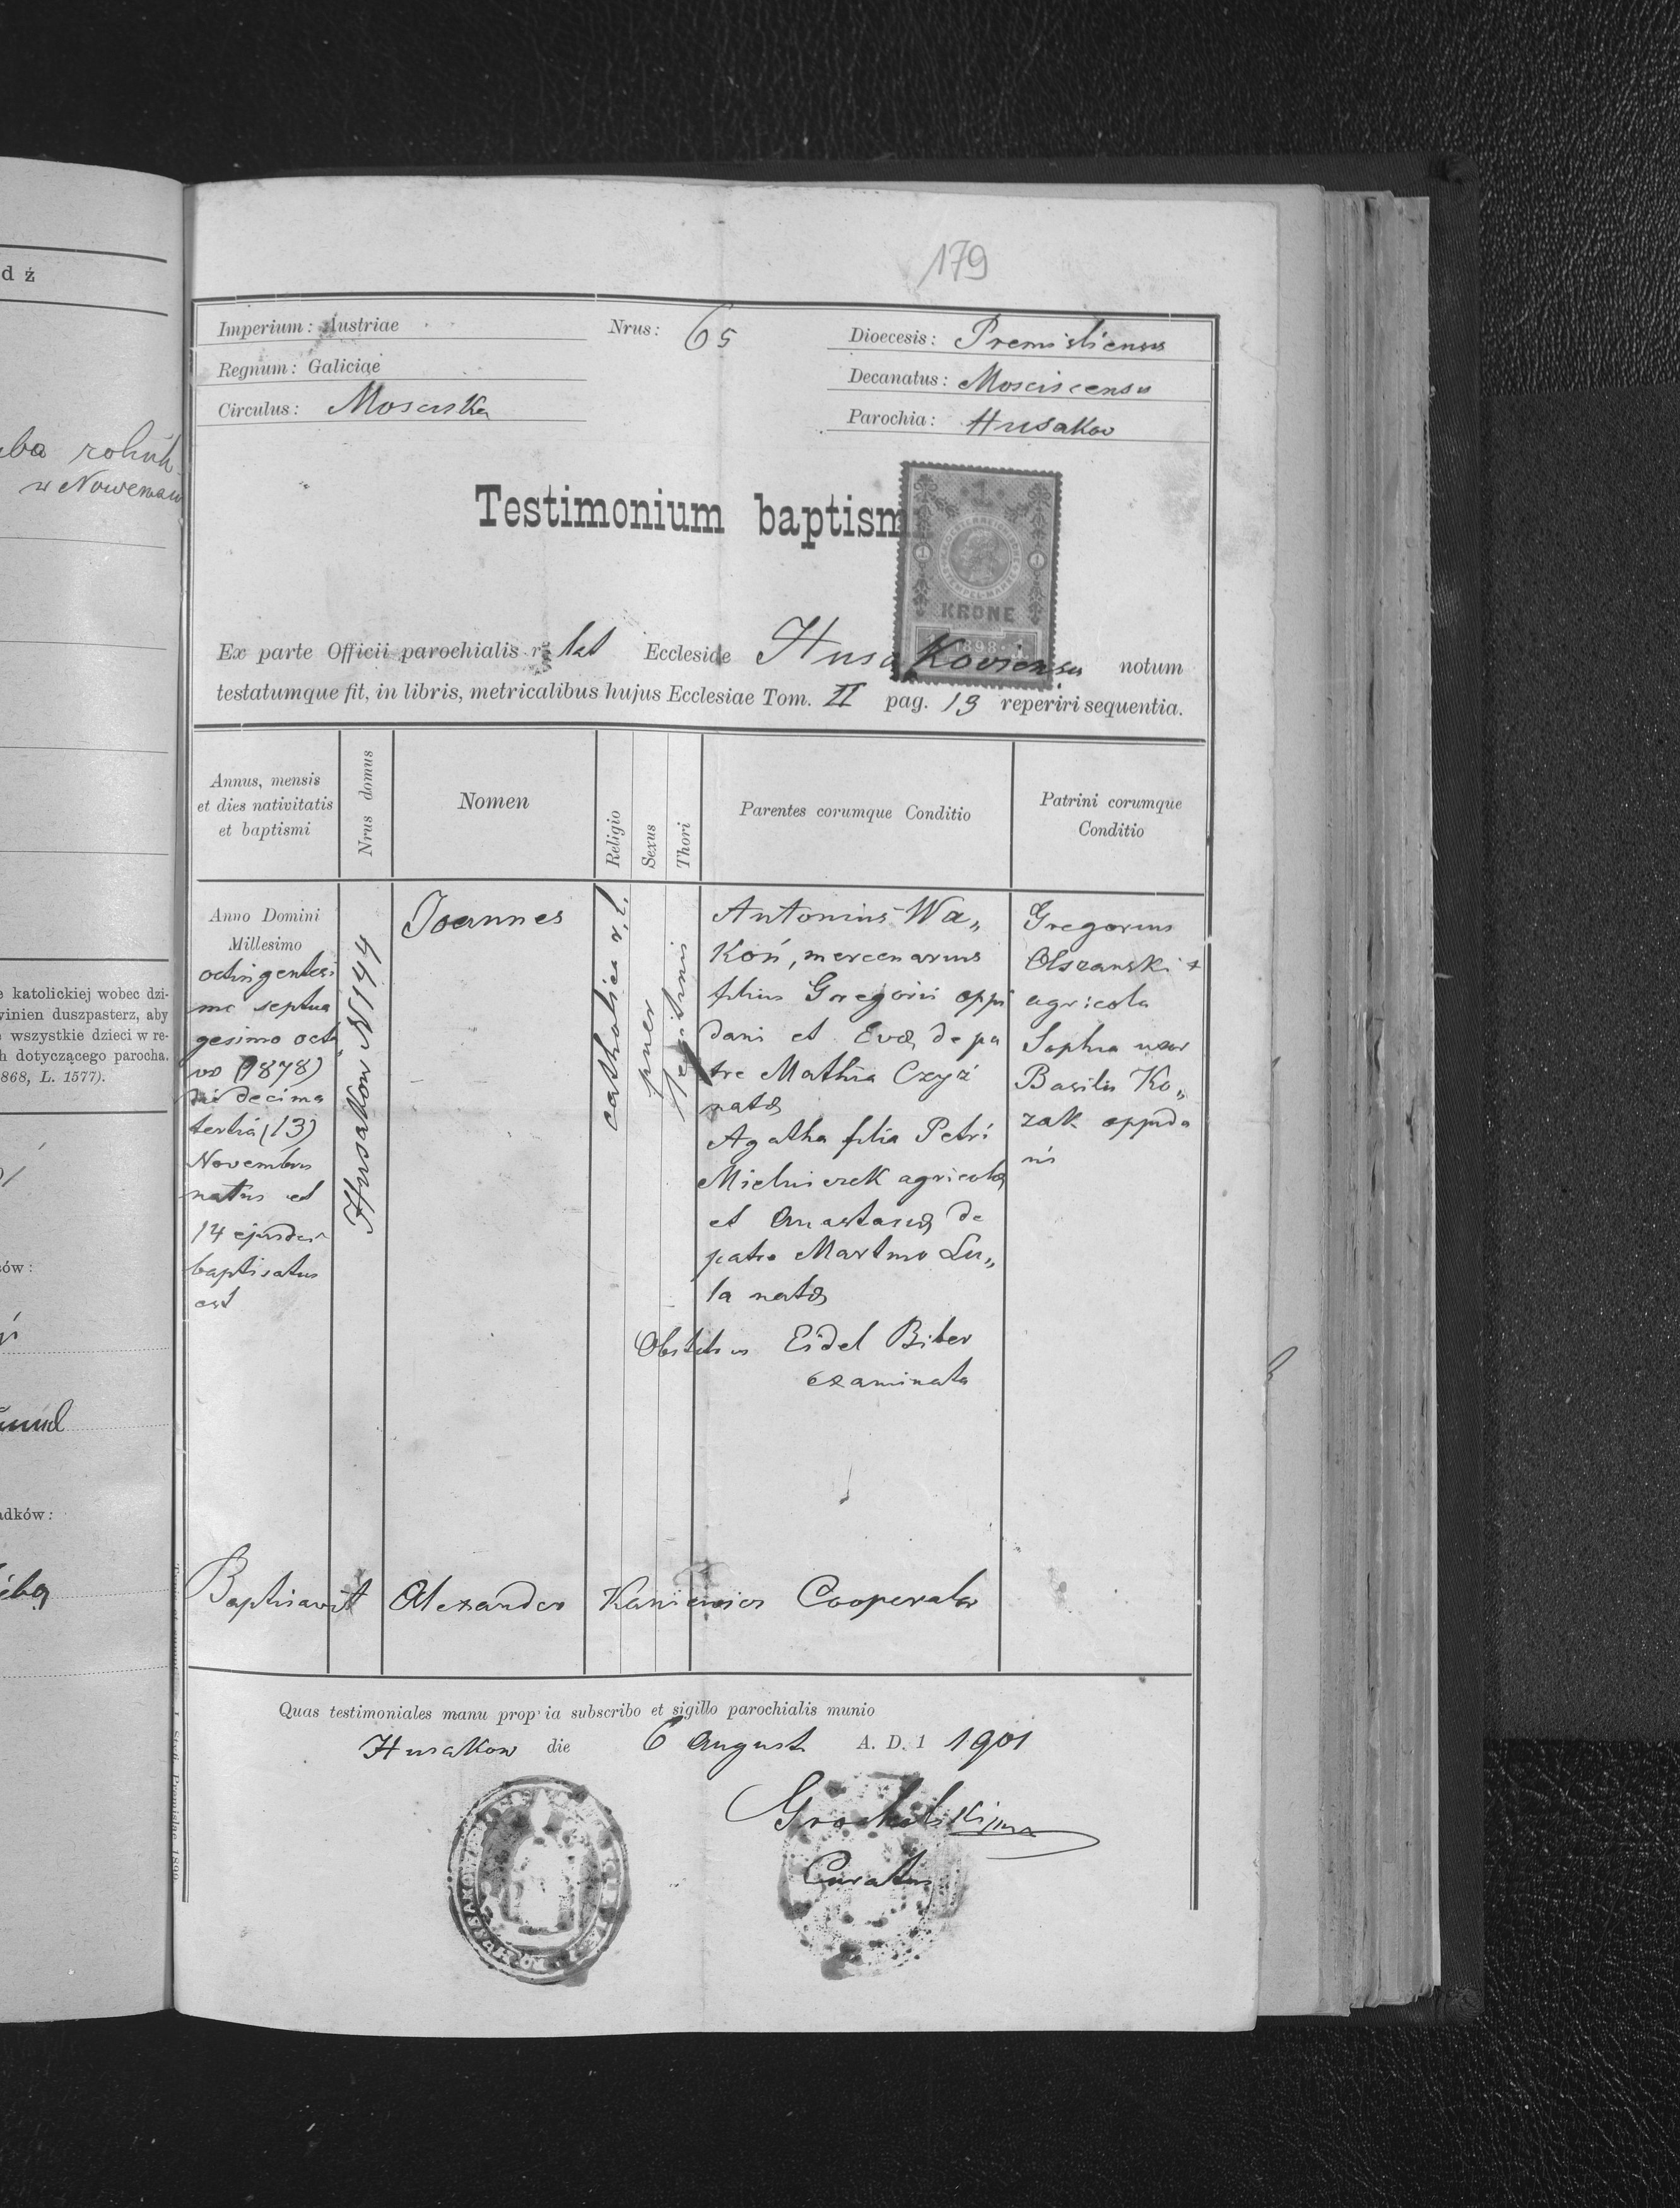 d ź
ba rolnik
w Nowem
e katolickiej wobec dzi-
winien duszpasterz, aby
wszystkie dzieci w re-
h dotyczącego parocha.
868, L. 1577).
ów:
adków:
179
Imperium: Austriae
Nrus: 65
Dioecesis: Premisliensis
Regnum: Galiciae
Decanatus: Mosciscensis
Circulus: Mosciska
Parochia: Husakow
Testimonium baptism
1
KRONE
1898
Ex parte Officii parochialis r. lat Ecclesiae Husakoviensis notum
testatumque fit, in libris, metricalibus hujus Ecclesiae Tom. II pag. 13 reperiri sequentia.
Annus, mensis
et dies nativitatis
et baptismi
Nrus domus
Nomen
Religio
Sexus
Thori
Parentes corumque Conditio
Patrini corumque
Conditio
Anno Domini
Millesimo
octingentesi
mo septua
gesimo octa
vo (1878)
die decima
tertia (13)
Novembris
natus et
14 ejusdem
baptisatus
est
Husakow N 144
Joannes
catholica r. l.
puer
legitimi
Antonius Wa„
koń, mercenarius
filius Gregorii oppi
dani et Evæ de pa
tre Mathia Czyż
natæ
Agatha filia Petri
Mielniczek agricolæ
et Anastasiæ de
patre Martino Lu„
la natæ
Obstetrix Eidel Biber
examinata
Gregorius
Olszanski
agricola
Sophia uxor
Basilii Ko„
zak oppida
ni
Baptisavit Alexander Cooperator
Quas testimoniales manu propria subscribo et sigillo parochialis munio
Husakow die 6 August A. D. 1 1901
Grocholski
Curatus